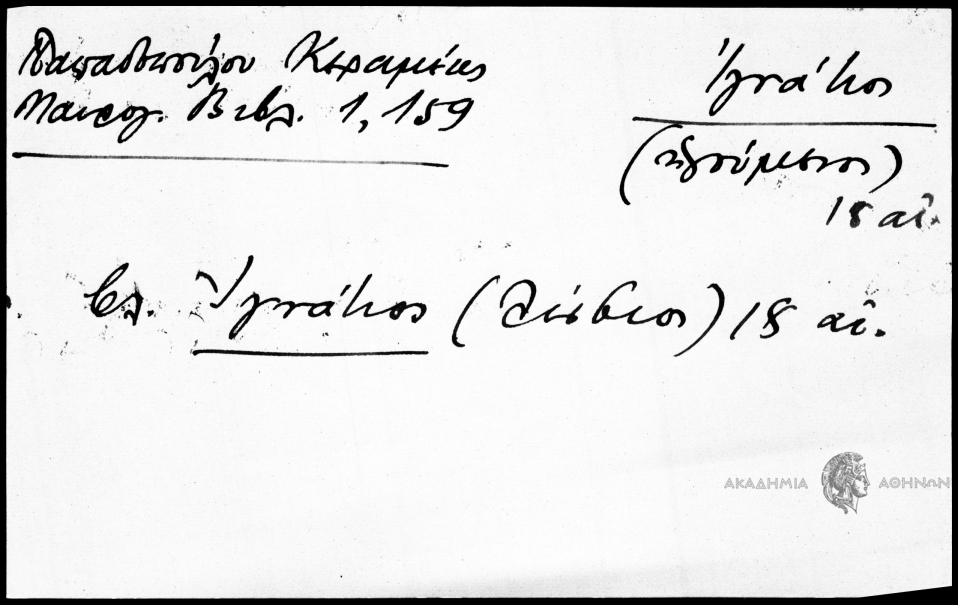 Παπαδοπούλου Κεραμέως
Μαυρογ. Βιβλ. 1, 159
Ἰγνάτιος
(ἡγούμενος)
18 αἰ.
βλ. Ἰγνάτιος (Λέσβιος) 18 αἰ.
ΑΚΑΔΗΜΙΑ ΑΘΗΝΩΝ